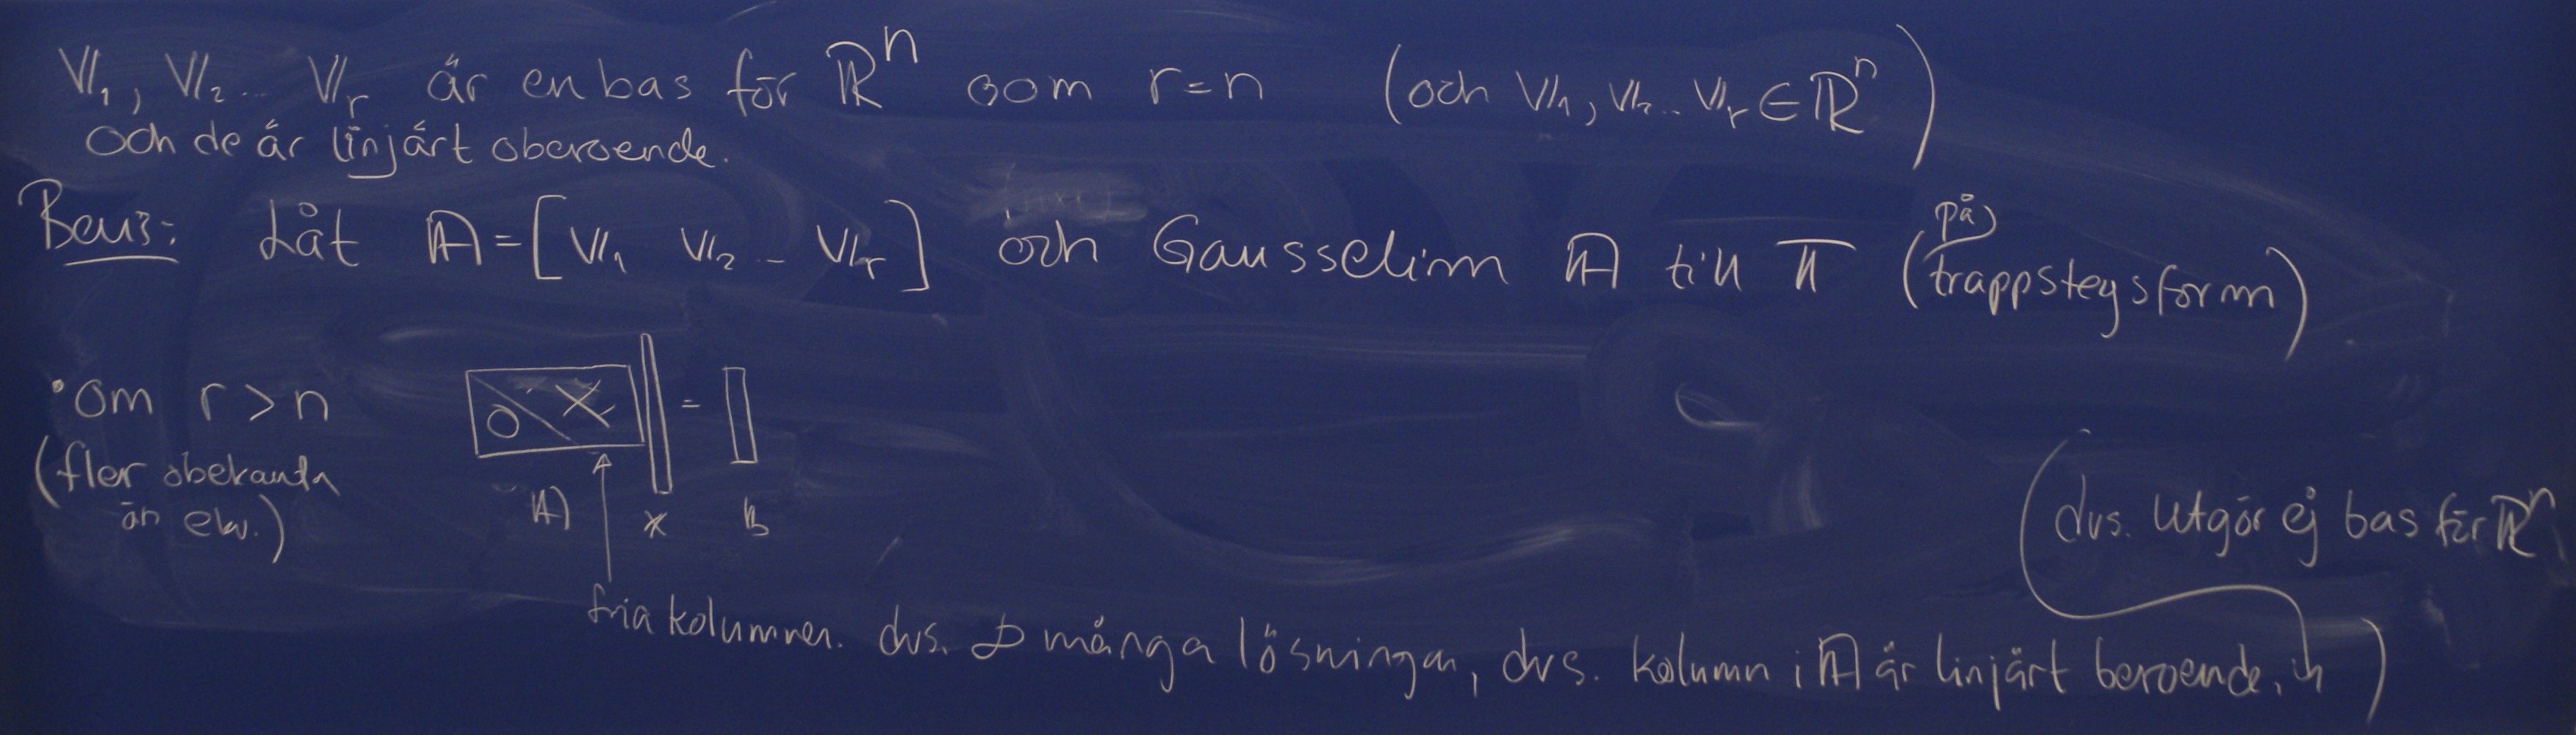 V₁, V₂... Vᵣ är en bas för ℝⁿ oom r=n (och V₁, V₂... Vᵣ ∈ ℝⁿ)
och de är linjärt oberoende.
Bevis: Låt A = [V₁ V₂ ... Vᵣ] och Gausselim A till T (på trappstegsform)
• om r > n
(fler obekanta
än ekv.)
0 X = 
A x b
fria kolumner. dvs. ∞ många lösningar, dvs. kolumn i A är linjärt beroende.
(dvs. utgör ej bas för ℝⁿ)